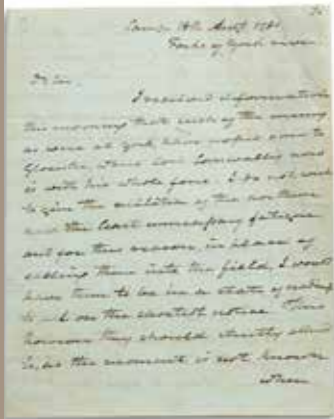 Camp 14th Augt 1781
Forks of York river
Sir
I received information
this morning that such of the enemy
as were at York have moved over to
Gloster, where Lord Cornwallis now
is with his whole force. I do not wish
to give the militia of the northern
the least unnecessary fatigue
and for this reason, in place of
calling them into the field, I would
have them to be in a state of
to act on the shortest notice. This
however they should strictly attend
to, as the moment is not known
when